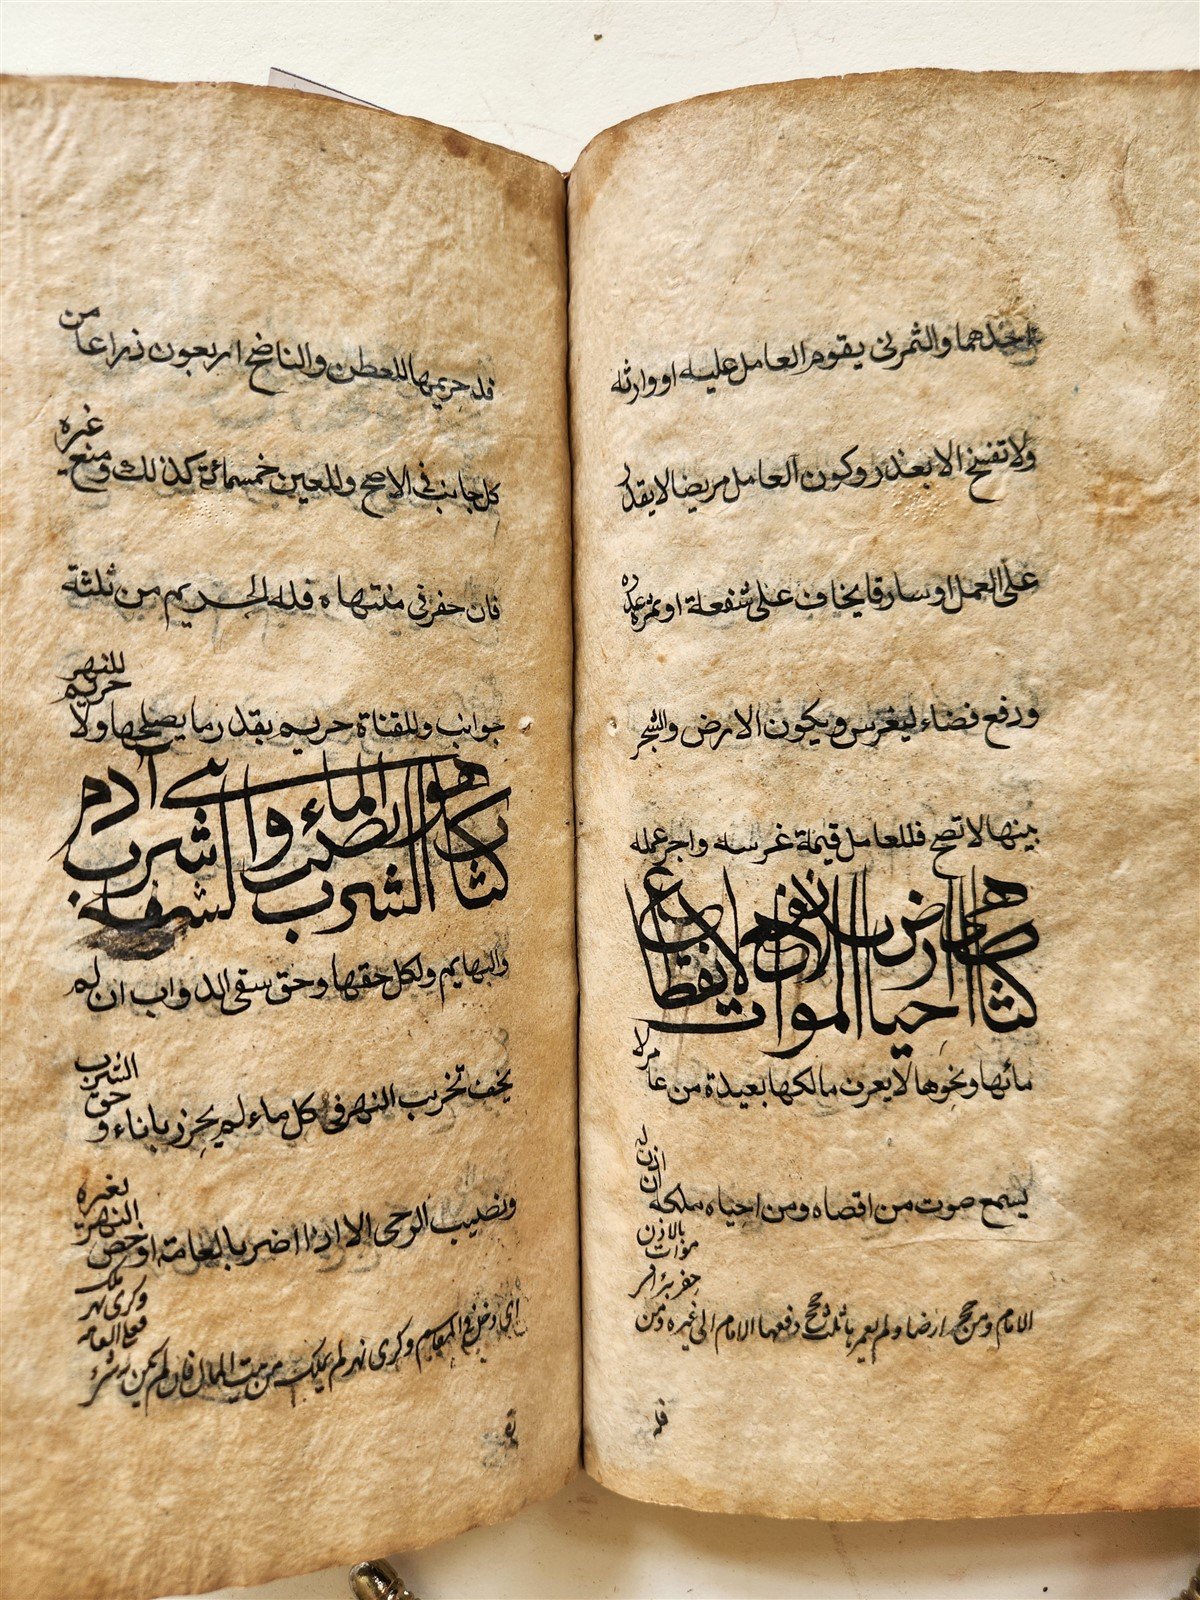 احدهما والثمر ني يقوم العامل عليه او وارثه
ولا تفسخ الا بعذر وكون العامل مريضا لا يقدر
على العمل او سارقا يخاف على شفعله او ثمره عذر
ودفع فضاء ليغرس ويكون الارض والشجر
بينهما لا تصح فللعامل قيمة غرسه واجر عمله
كتاب احياء الموات
هي ارض بلا نفع لانقطاع
مائها ونحوها لا يعرف مالكها بعيدة من عامر لا
يسمع صوت من اقصاه ومن احياه ملكه ان اذن له
الامام ومن حجر ارضا ولم يعمر ثلث حجج دفعها الامام الى غيره ومن
حفر بئرا في موات بالاذن
فله
فله حريمها للعطن والناضح اربعون ذراعا من
كل جانب في الاصح وللعين خمسمائة كذلك ومنع غيره
فان حفر في منتهاه فله الحريم من ثلثة
جوانب وللقناة حريم بقدر ما يصلحها ولا حريم للنهر
كتاب الشرب
هو نصيب الماء والشفة شرب بني آدم
والبهايم ولكل حقها وحق سقى الدواب ان لم
يخف تخريب النهر في كل ماء لم يحرز باناء وحق الشرب
ونصيب الرحى الا اذا اضر بالعامة او خص النهر بغيره
اى دخل في المقاسم وكرى نهر لم يملك من بيت المال فان لم يكن
فعلى العامه وكرى نهر ملك